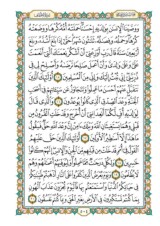 ووصينا الإنسان بوالديه إحسانا حملته أمه كرها ووضعته
كرها وحمله وفصاله ثلاثون شهرا حتى إذا بلغ أشده وبلغ
أربعين سنة قال رب أوزعني أن أشكر نعمتك التي أنعمت
علي وعلى والدي وأن أعمل صالحا ترضاه وأصلح لي في
ذريتي إني تبت إليك وإني من المسلمين أولئك الذين
نتقبل عنهم أحسن ما عملوا ونتجاوز عن سيئاتهم في أصحاب
الجنة وعد الصدق الذي كانوا يوعدون والذي قال
لوالديه أف لكما أتعدانني أن أخرج وقد خلت القرون من
قبلي وهما يستغيثان الله ويلك آمن إن وعد الله حق فيقول
ما هذا إلا أساطير الأولين أولئك الذين حق عليهم
القول في أمم قد خلت من قبلهم من الجن والإنس إنهم كانوا
خاسرين ولكل درجات مما عملوا وليوفيهم أعمالهم وهم
لا يظلمون ويوم يعرض الذين كفروا على النار أذهبتم طيباتكم
في حياتكم الدنيا واستمتعتم بها فاليوم تجزون عذاب الهون
بما كنتم تستكبرون في الأرض بغير الحق وبما كنتم تفسقون